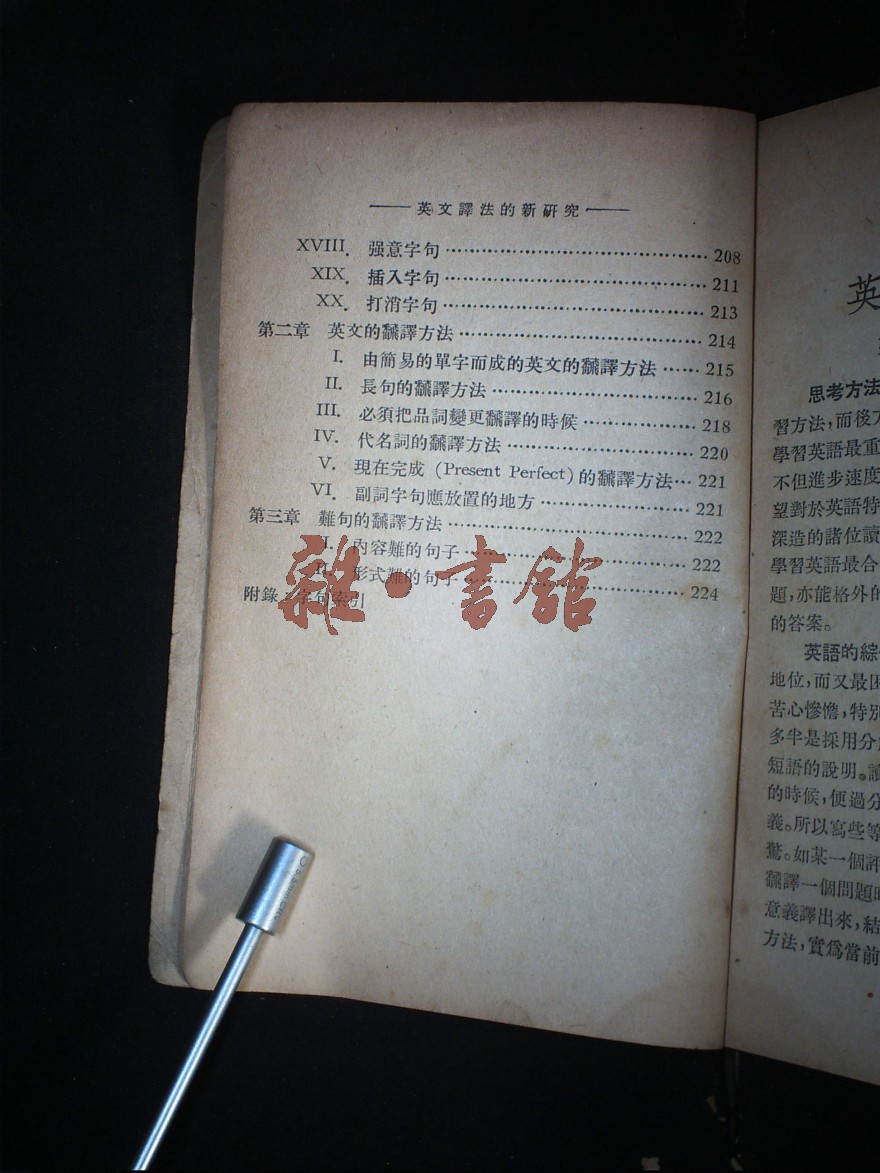 英文譯法的新研究
XVIII. 强意字句 208
XIX. 插入字句 211
XX. 打消字句 213
第二章 英文的飜譯方法 214
I. 由簡易的單字而成的英文的飜譯方法 215
II. 長句的飜譯方法 216
III. 必須把品詞變更飜譯的時候 218
IV. 代名詞的飜譯方法 220
V. 現在完成 (Present Perfect) 的飜譯方法 221
VI. 副詞字句應放置的地方 221
第三章 難句的飜譯方法 222
I. 內容難的句子 222
II. 形式難的句子 224
附錄 字句索引
雜·書館
英
思考方法
習方法,而後
學習英語最重
不但進步速度
望對於英語特
深造的諸位讀
學習英語最合
題,亦能格外的
的答案。
英語的綜
地位,而又最困
苦心慘憺,特別
多半是採用分
短語的說明。讀
的時候,便過分
義。所以寫些等
驚。如某一個評
飜譯一個問題時
意義譯出來,結
方法,實爲當前